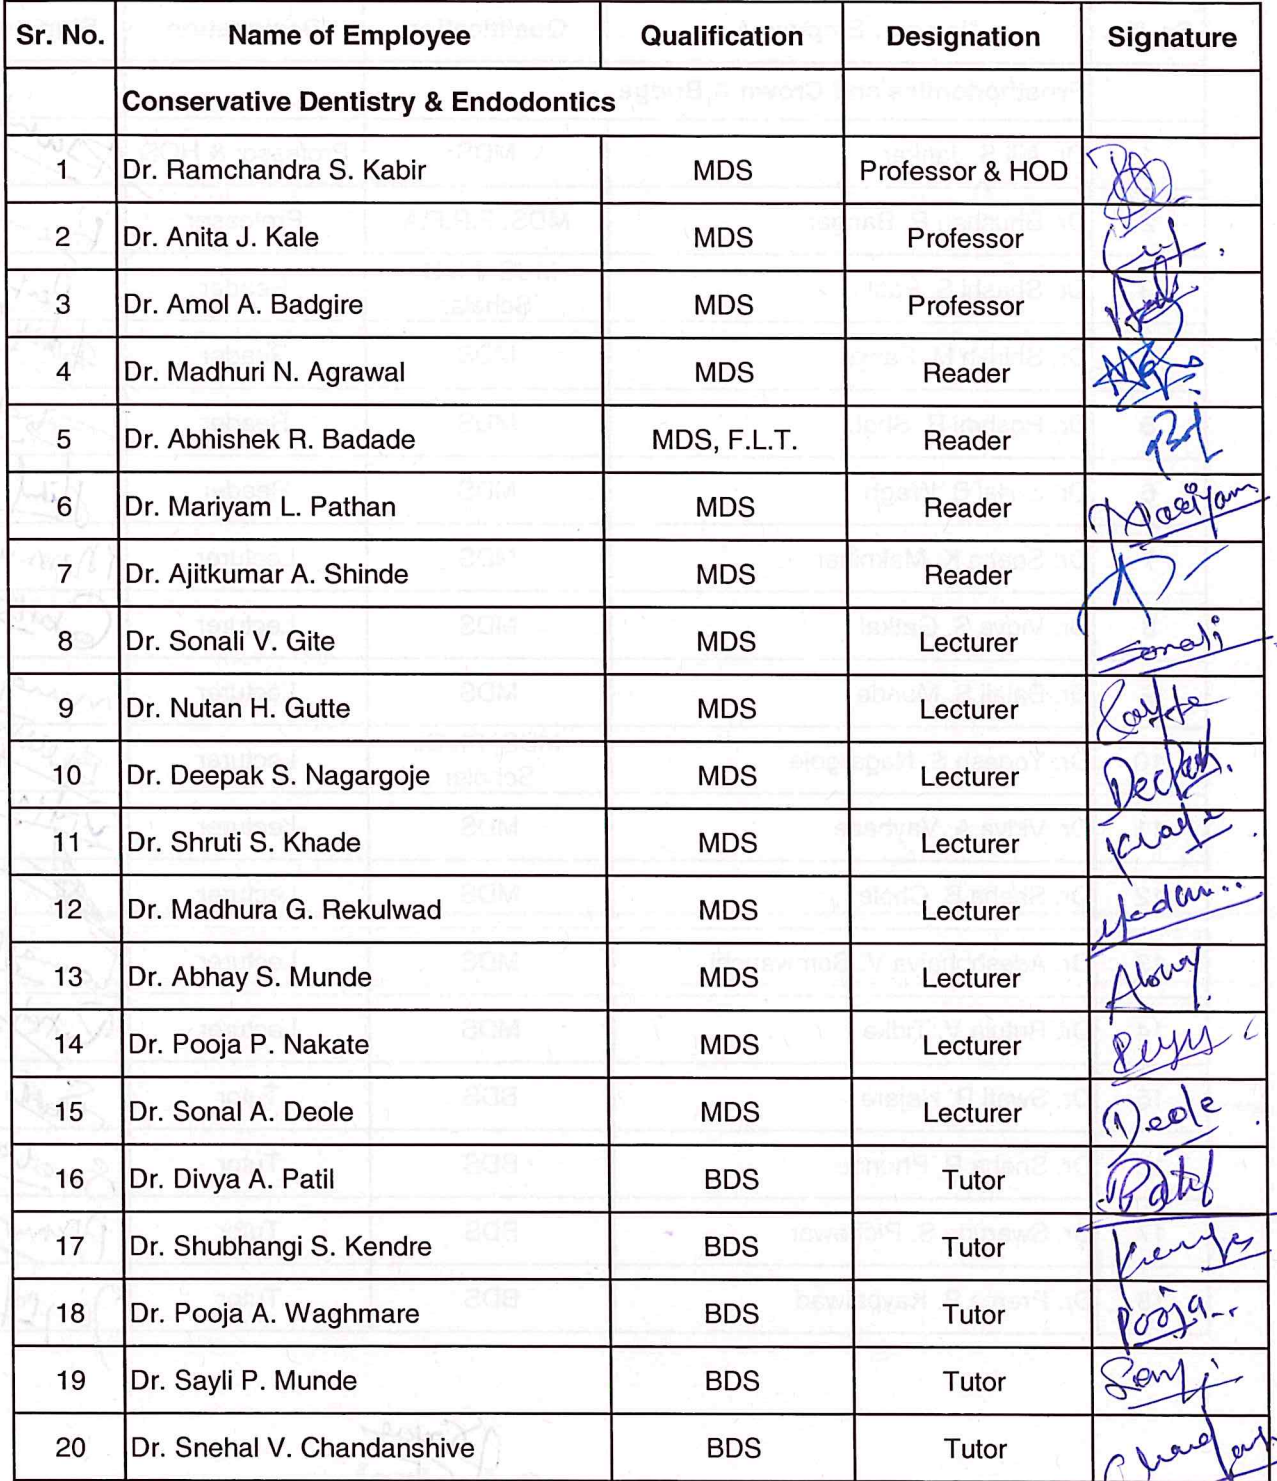 Sr. No. Name of Employee Qualification Designation Signature
Conservative Dentistry & Endodontics
1 Dr. Ramchandra S. Kabir MDS Professor & HOD
2 Dr. Anita J. Kale MDS Professor
3 Dr. Amol A. Badgire MDS Professor
4 Dr. Madhuri N. Agrawal MDS Reader
5 Dr. Abhishek R. Badade MDS, F.L.T. Reader
6 Dr. Mariyam L. Pathan MDS Reader Mariyam
7 Dr. Ajitkumar A. Shinde MDS Reader
8 Dr. Sonali V. Gite MDS Lecturer Sonali
9 Dr. Nutan H. Gutte MDS Lecturer
10 Dr. Deepak S. Nagargoje MDS Lecturer Deepak
11 Dr. Shruti S. Khade MDS Lecturer
12 Dr. Madhura G. Rekulwad MDS Lecturer
13 Dr. Abhay S. Munde MDS Lecturer Abhay
14 Dr. Pooja P. Nakate MDS Lecturer
15 Dr. Sonal A. Deole MDS Lecturer Deole
16 Dr. Divya A. Patil BDS Tutor Patil
17 Dr. Shubhangi S. Kendre BDS Tutor
18 Dr. Pooja A. Waghmare BDS Tutor Pooja
19 Dr. Sayli P. Munde BDS Tutor
20 Dr. Snehal V. Chandanshive BDS Tutor